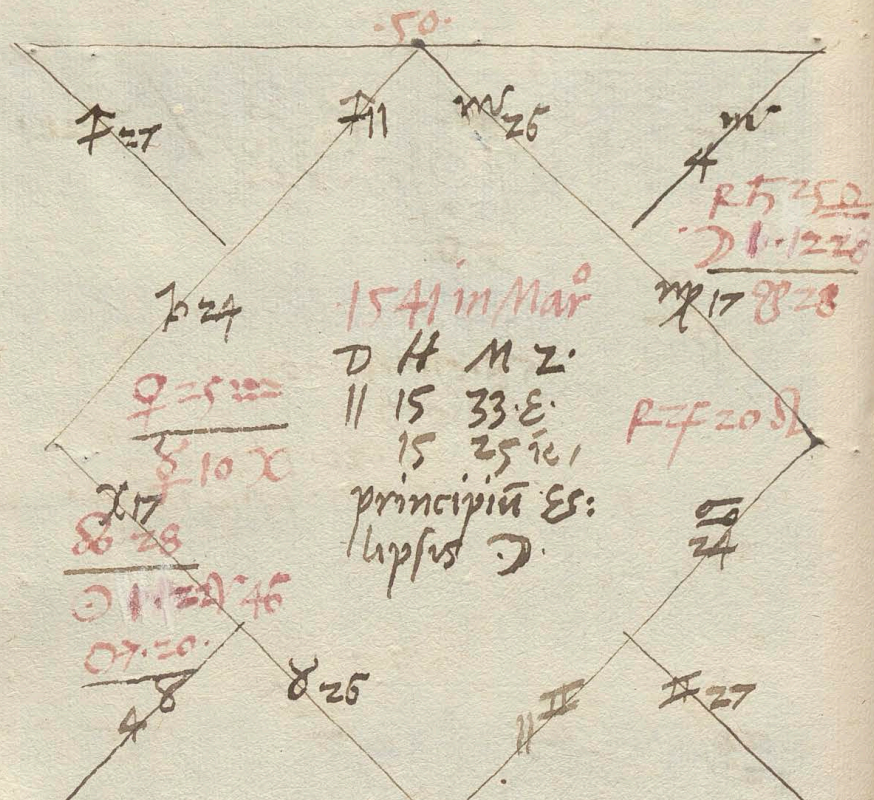 ·50·
♐ 27
♐ 11
♏ 26
♏ 4
R ♄ 25 ♎
☽ 1·122
♍ 17 ☋ 28
♑ 24
1541 in Mar°
D H M Z·
11 15 33·E·
15 25
principiū Ec:
lipsis ☽·
♀ 25 ♒
☿ 10 ♓
R ♃ 20 ♌
♓ 17
☊ 28
☉ 1·122 ♈ 46
♂ 7·20·
♉ 4
♉ 26
♋ 24
♊ 11
♊ 27